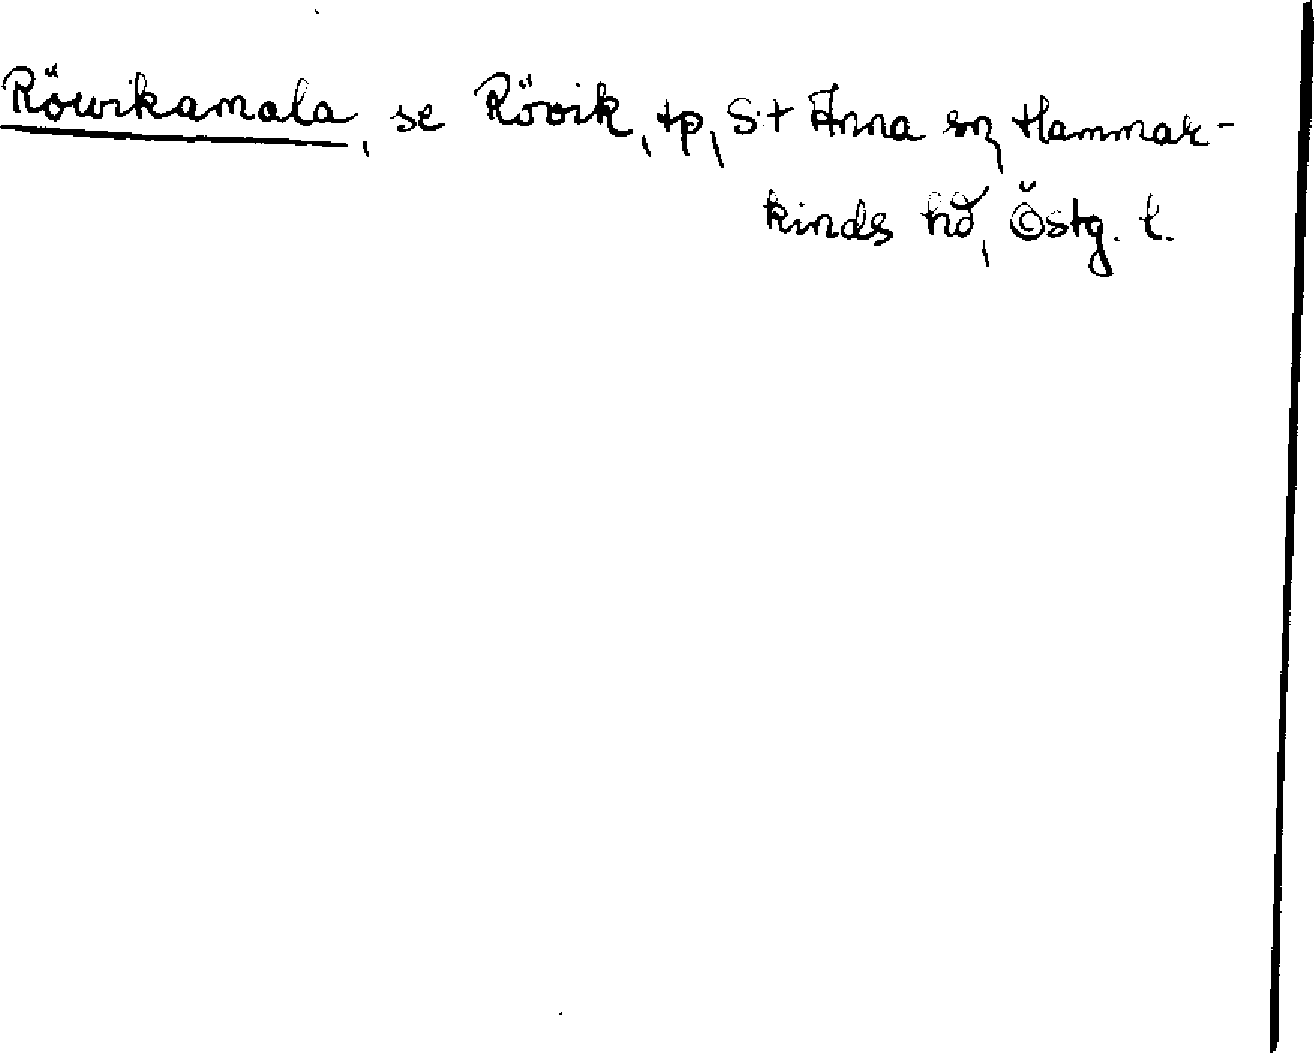 Röwikamala, se Rövik, tp, S:t Anna sn, Hammar-
kinds hd, Östg. l.